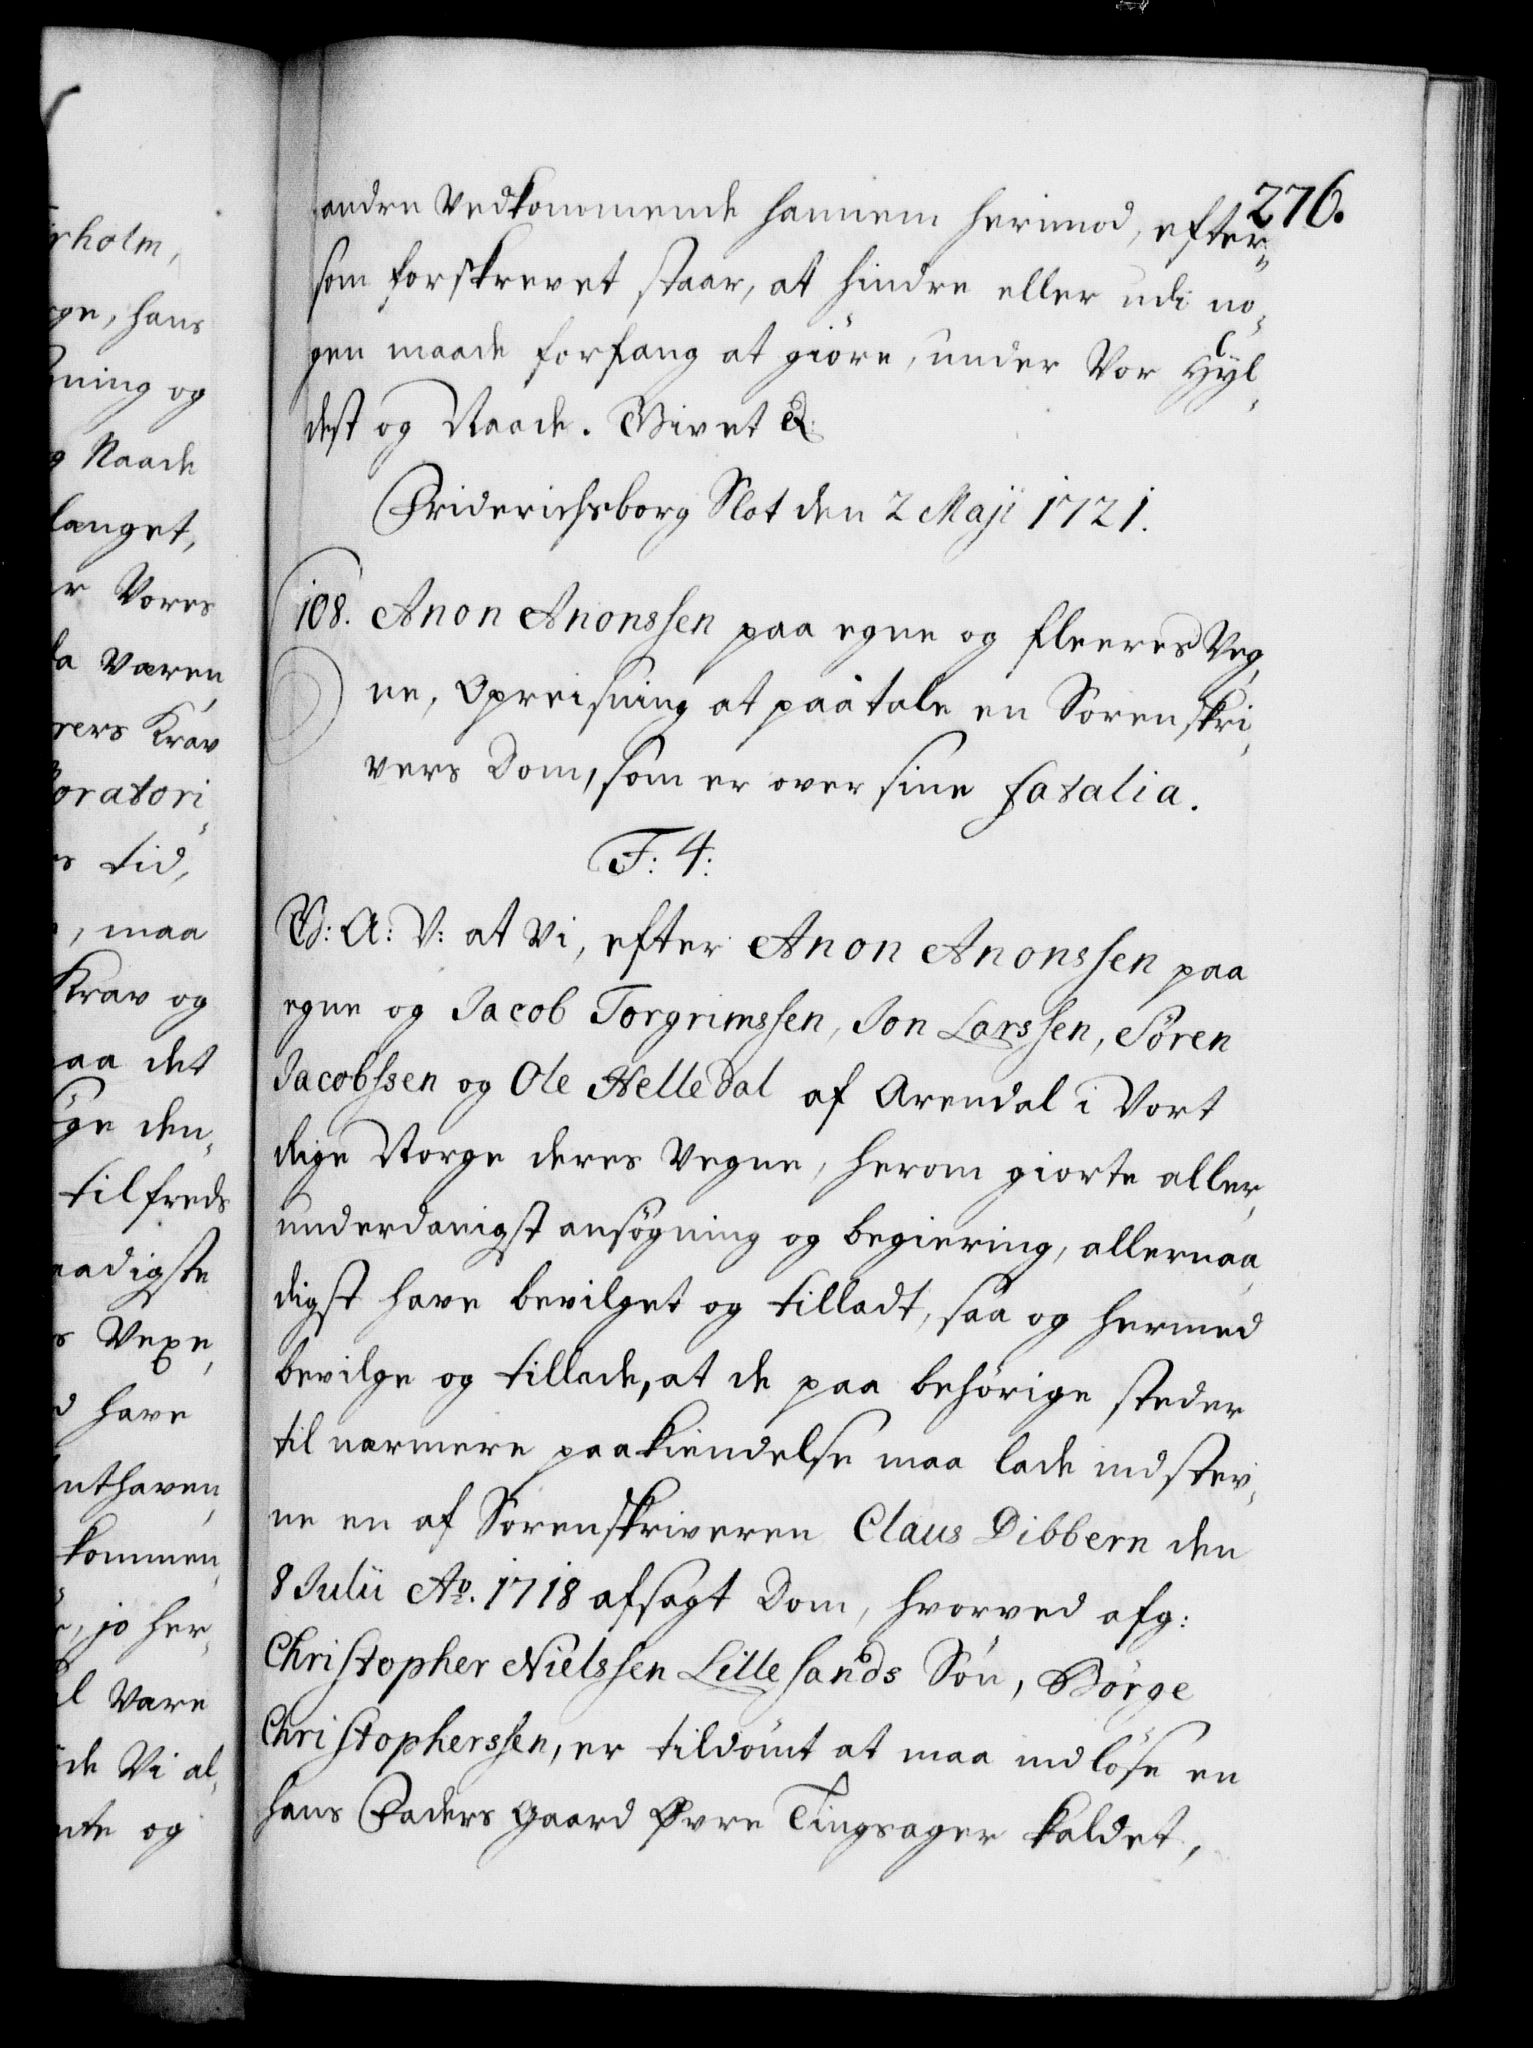 rholm,
ge, hans
ning og
g Naade
langet,
r Vores
da væren
rers Krav
oratori
s tid,
, maa
Krav og
paa det
ge den
tilfreds
aadigste
s Vexe,
d have
nthaven,
kommen,
, jo her
l være
de Vi al,
nte og
276.
andre Vedkommende hannem herimod, efter,,
som forskrevet staar, at hindre eller udi no,,
gen maade forfang at giöre, under Vor Hyl,,
dest og Naade. Givet &
Friderichsborg Slot den 2 Maji 1721.
108. Anon Anonssen paa egne og fleeres Veg,
ne, Opreisning at paatale en Sorenskri,
vers Dom, som er over sine fatalia.
F: 4:
G: A: V: at Vi, efter Anon Anonssen paa
egne og Jacob Torgrimssen, Jon Larssen, Sören
Jacobssen og Ole Helledal af Arendal i Vort
Rige Norge deres Vegne, herom giorte aller,
underdanigst ansögning og begiering, allernaa,
digst have bevilget og tilladt, saa og hermed
bevilge og tillade, at de paa behörige steder
til nærmere paakiendelse maa lade indstev,
ne en af Sorenskriveren Claus Dibbern den
8 Julii Ao. 1718 afsagt Dom, hvorved afg:
Christopher Nielssen Lillesands Sön, Börge
Christopherssen, er tildömt at maa indlöse en
hans Faders Gaard Øvre Tingsager kaldet,